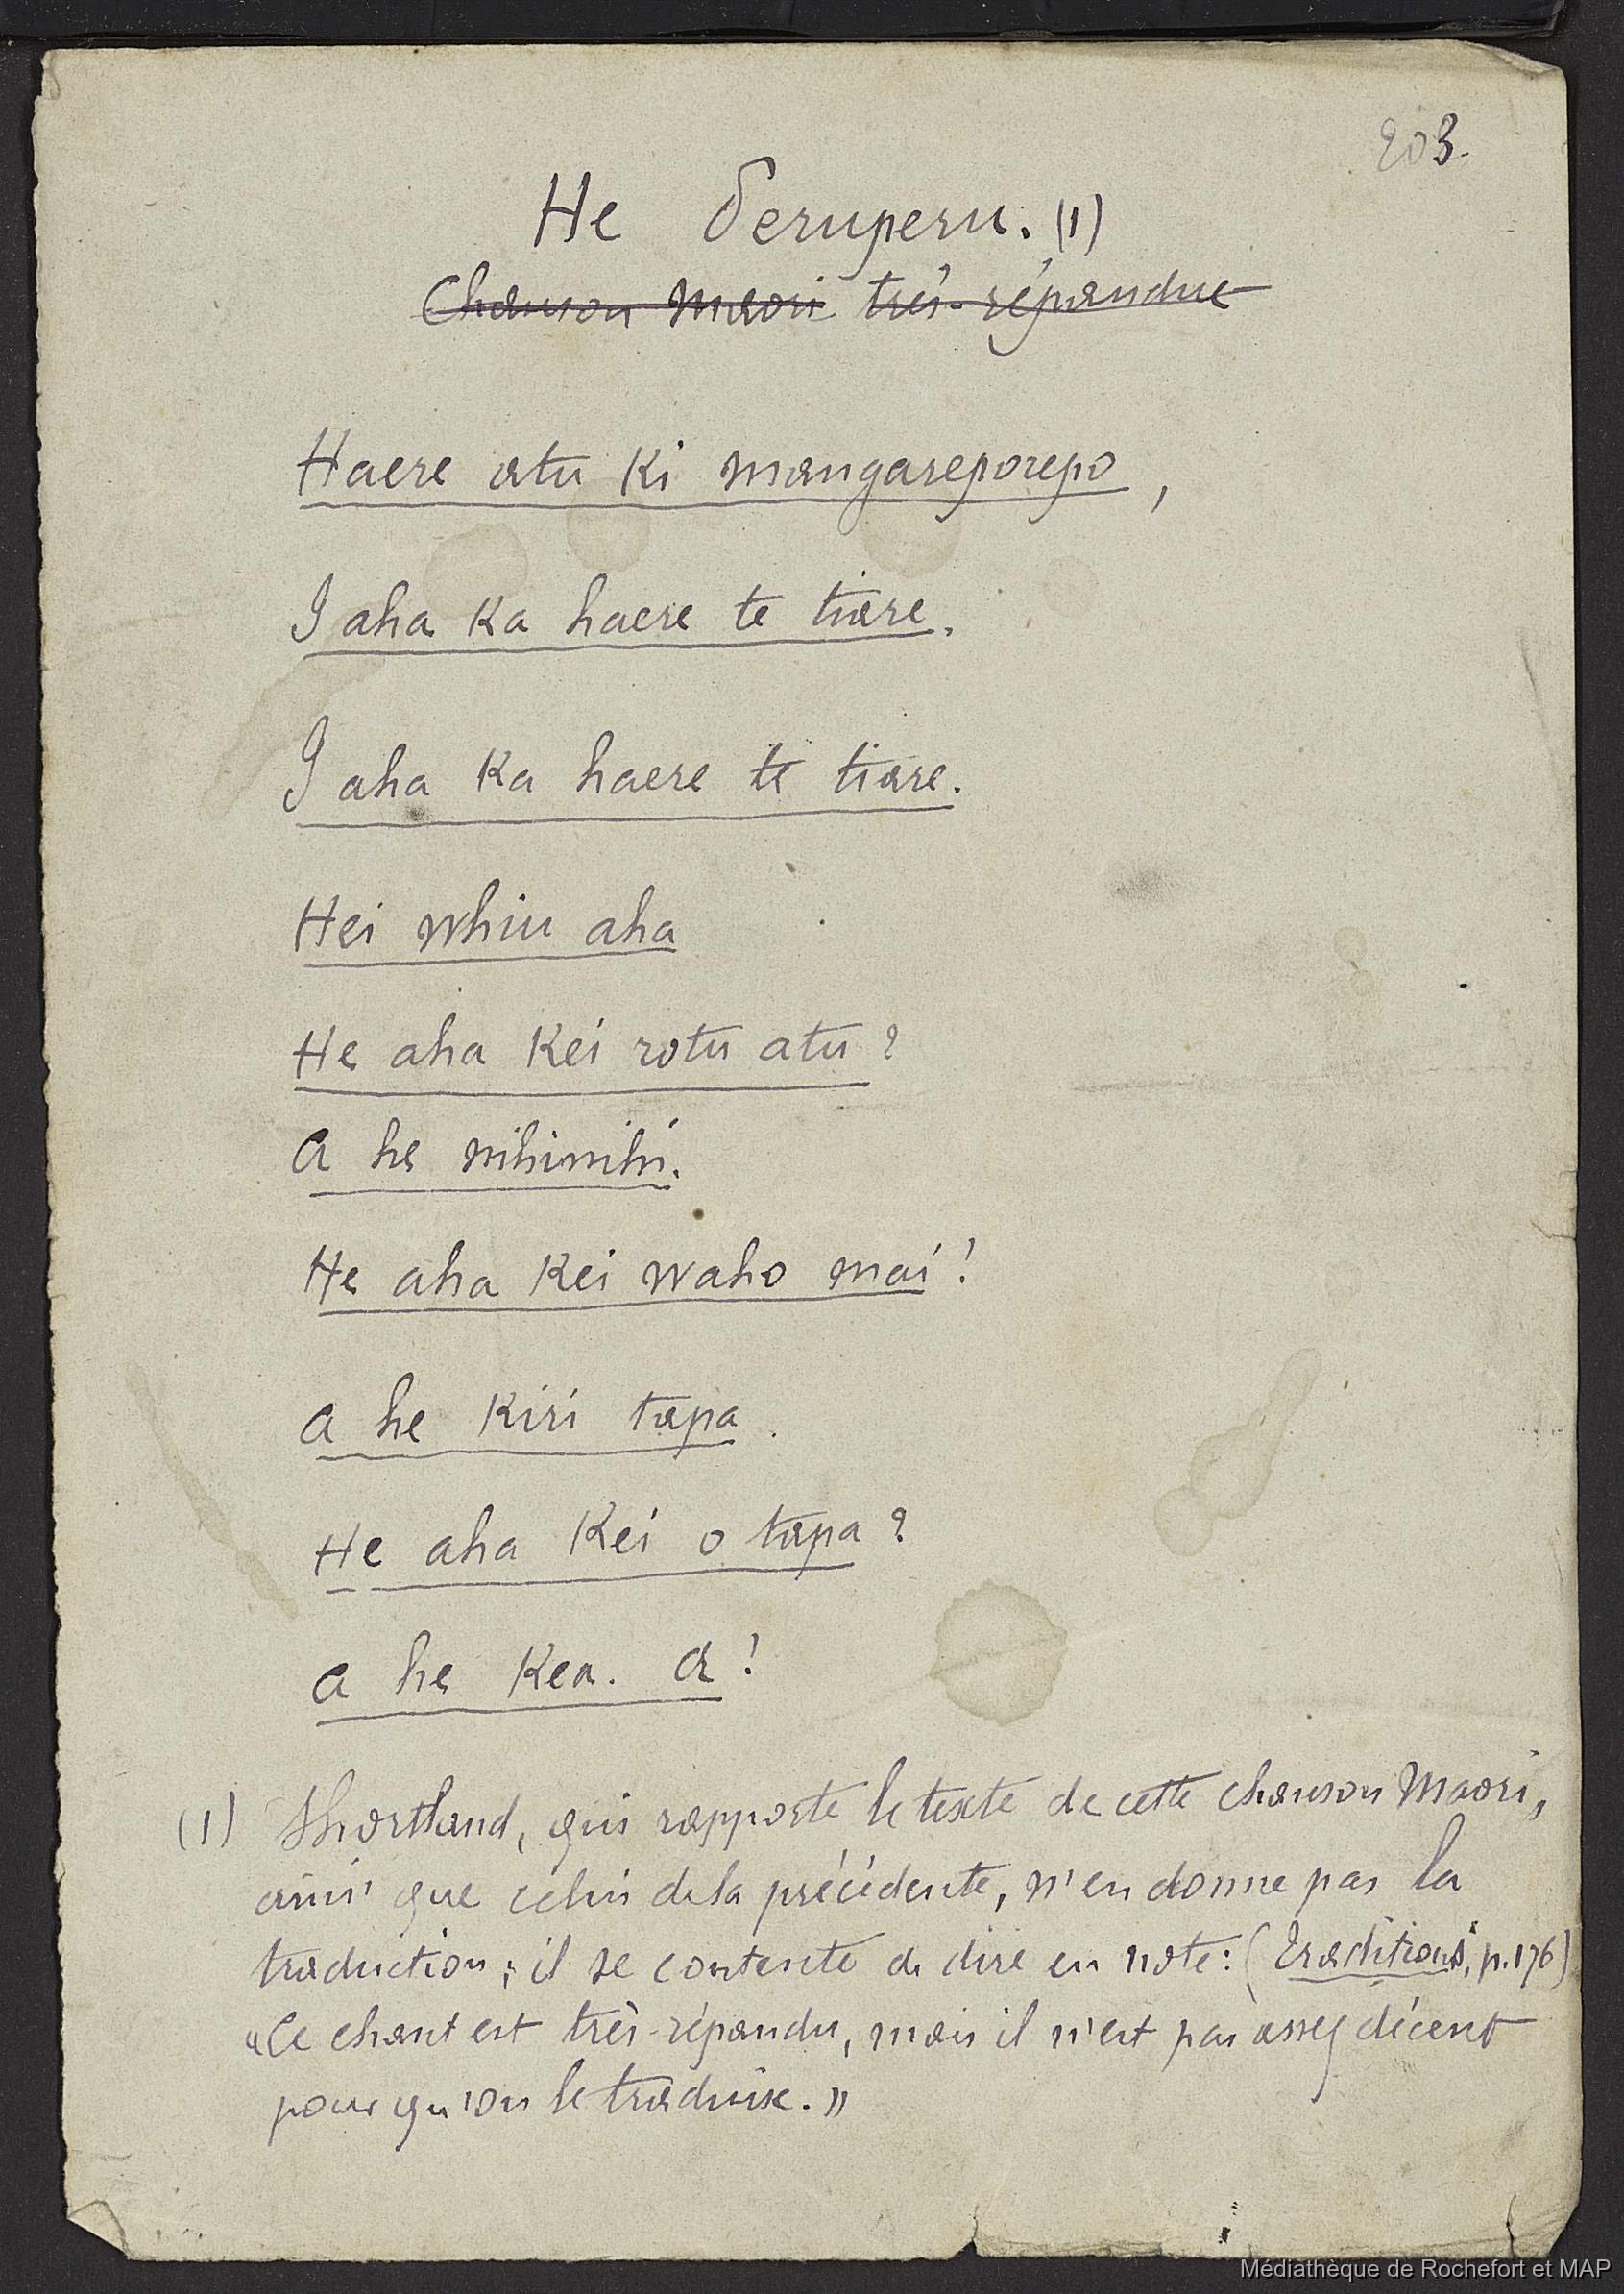 203.
He Peruperu. (1)
Chanson Maori très-répandue
Haere atu ki mangareporepo,
I aha ka haere te tiare.
I aha ka haere te tiare.
Hei whiu aha
He aha kei rotu atu ?
A he nihinihi.
He aha kei waho mai !
A he kiri tapa.
He aha kei o tapa ?
A he kea. A !
(1) Shortland, qui rapporte le texte de cette chanson Maori,
ainsi que celui de la précédente, n'en donne pas la
traduction ; il se contente de dire en note : (Traditions, p. 176)
« Ce chant est très-répandu, mais il n'est pas assez décent
pour qu'on le traduise. »
Médiathèque de Rochefort et MAP